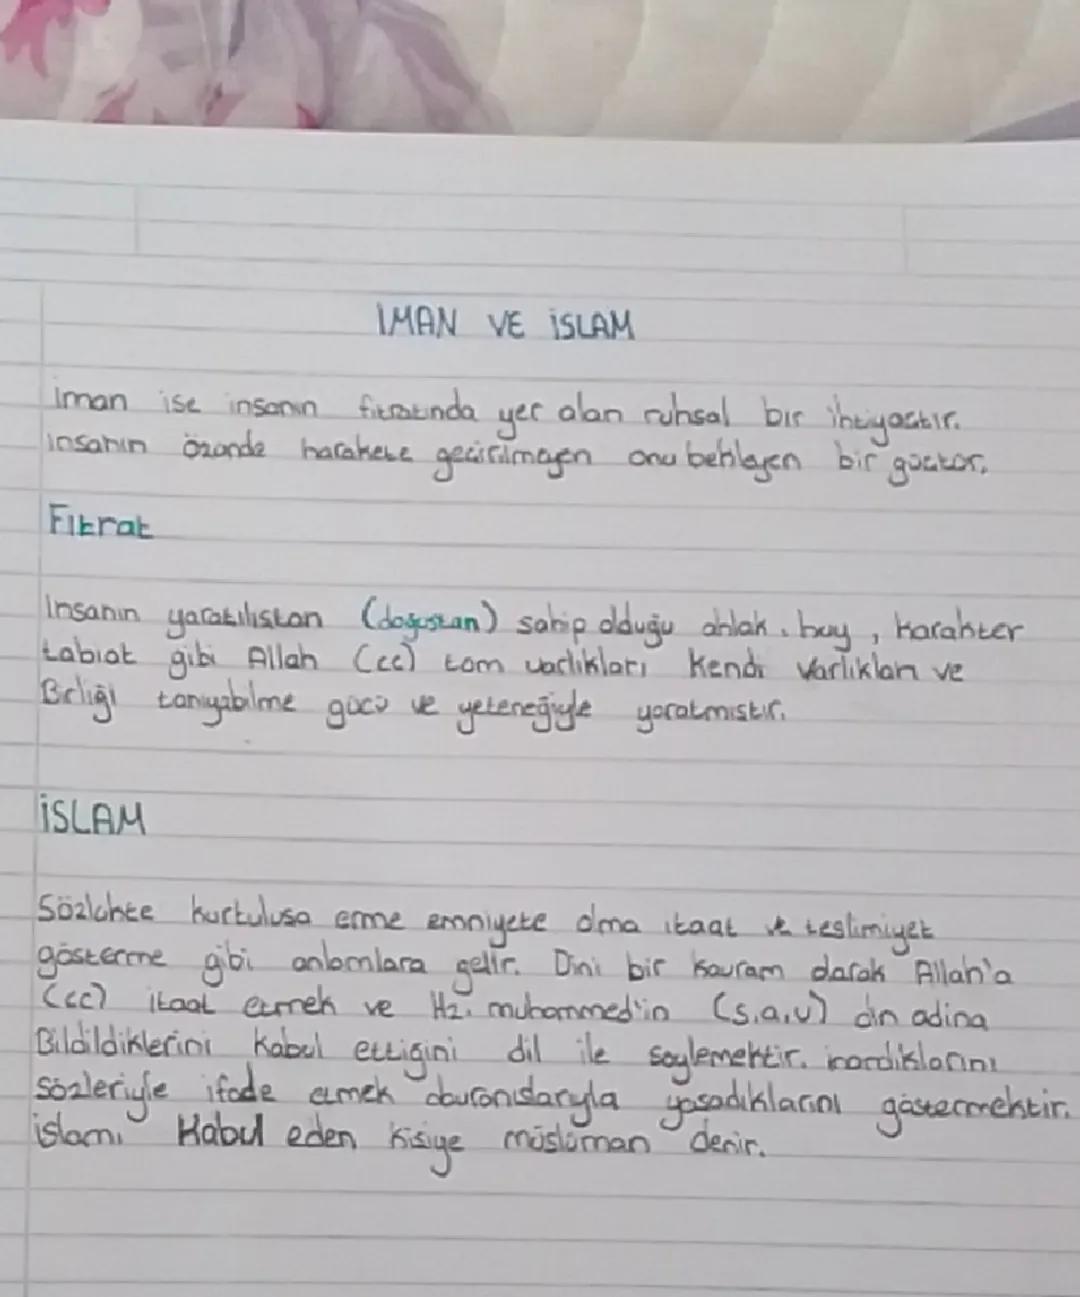 İMAN VE İSLAM
iman ise insanın fıtratında yer alan ruhsal bir ihtiyactır.
insanın özünde harakete gecirilmeyen onu bekleyen bir güctür.
Fıtrat
İnsanın yaratılıstan (dogustan) sahip olduğu ahlak, huy, karakter
tabiat gibi Allah (cc) tüm varlıkları kendi varlıkları ve
Birliği tanıyabilme gücü ve yeteneğiyle yaratmıstır.
İSLAM
Sözlükte kurtulusa erme emniyete olma itaat ve teslimiyet
gösterme gibi anlamlara gelir. Dini bir kavram olarak Allah'a
(cc) itaat etmek ve Hz. muhammed'in (s.a.v) din adina
Bildildiklerini kabul ettigini dil ile soylemektir. inandıklarını
sözleriyle ifade etmek davranıslarıyla yasadıklarını göstermektir.
islamı Kabul eden kisiye müslüman denir.